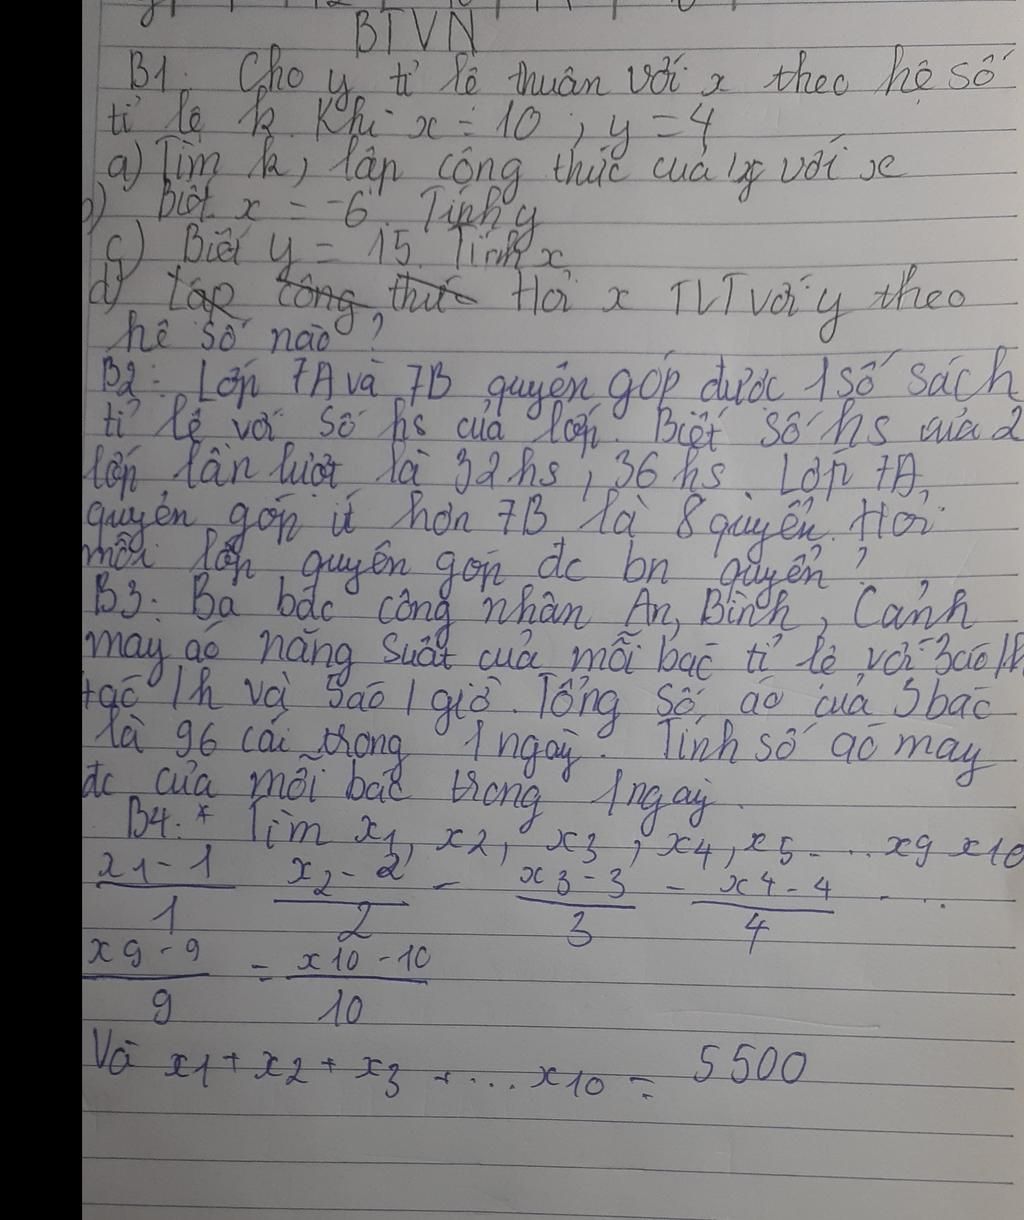 BTVN
B1: Cho y tỉ lệ thuận với x theo hệ số
tỉ lệ k. Khi x = 10, y = 4
a) Tìm k, lập công thức của y với x
b) Biết x = -6. Tính y
c) Biết y = 15. Tính x
d) Lập công thức Hỏi x TLT với y theo
hệ số nào?
B2: Lớp 7A và 7B quyên góp được 1 số sách
tỉ lệ với số hs của lớp. Biết số hs của 2
lớp lần lượt là 32 hs, 36 hs. Lớp 7A
quyên góp ít hơn 7B là 8 quyển. Hỏi
mỗi lớp quyên góp đc bn quyển?
B3: Ba bác công nhân An, Bình, Cảnh
may áo năng suất của mỗi bác tỉ lệ với 3áo/1h
1h và 5áo/giờ. Tổng số áo của 3 bác
là 96 cái trong 1 ngày. Tính số áo may
đc của mỗi bác trong 1 ngày.
B4: * Tìm x1, x2, x3, x4, x5 ... x9 x10
x1-1/1 x2-2/2 - x3-3/3 - x4-4/4 ...
x9-9/9 = x10-10/10
Và x1 + x2 + x3 + ... x10 = 5500